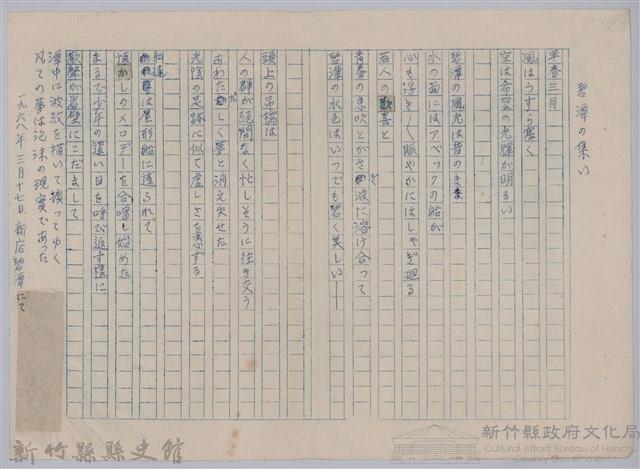 碧潭の集い
早春三月
風はうすら寒く
空は希望の光輝が明るい
碧潭の風光は昔のまま
水の面にはアベックの船が
心も浮き〱賑やかにはしゃぎ廻る
恋人の歓喜と
青春の息吹とがさざ波に溶け合って
碧潭の水色はいつでも碧く美しい――
頭上の吊橋は
人の群が絶間なく忙しそうに往き交う
あわただしく夢と消え失せた
光陰の足跡に似て虚しさを感ずる
は屋形船に遥られて
懐かしのメロデーを合唱し始めた
まるで少年の遠い日を呼び返す様に
歓声が岩壁にこだまして
潭中に波紋を描いて揺ってゆく
凡ての夢は泡沫の現実であった
一九六八年 三月十七日 新店碧潭にて
新竹縣縣史館
新竹縣政府文化局
Cultural Affairs Bureau of Hsinchu
County Government